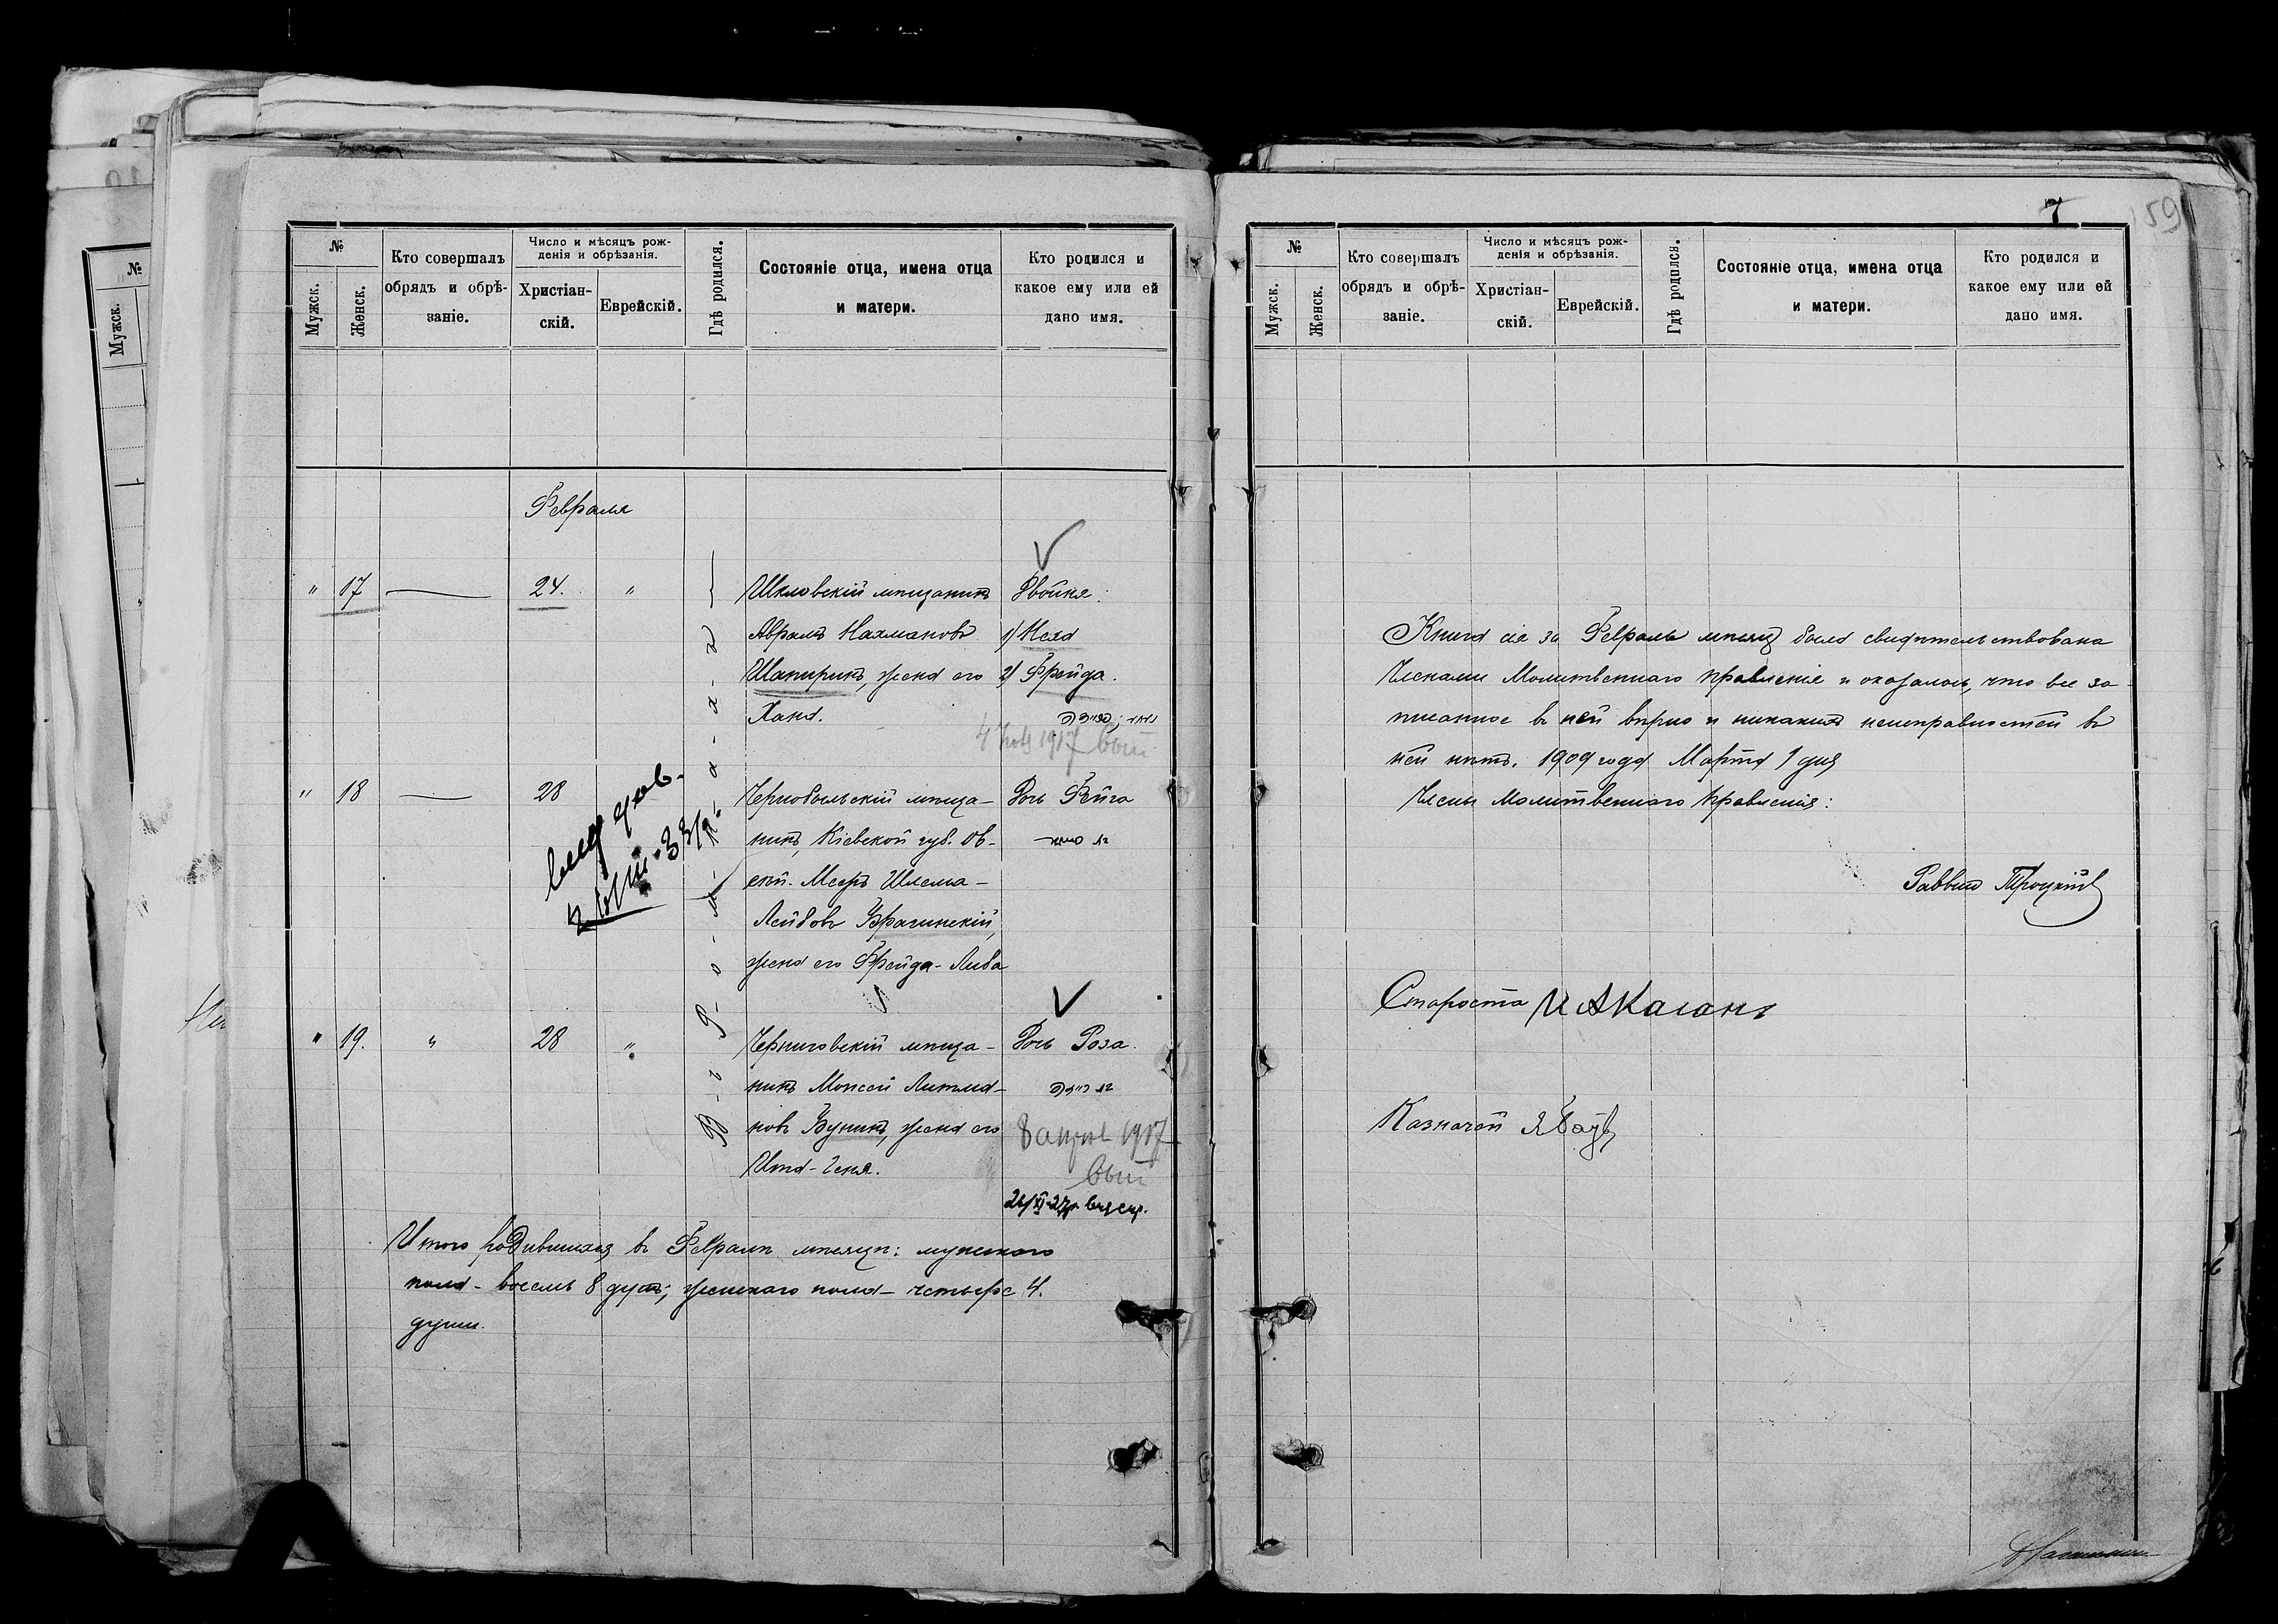 №
Мужск.
Женск.
Кто совершалъ
обрядъ и обрѣ-
заніе.
Число и мѣсяцъ рож-
денія и обрѣзанія.
Христіан-
скій.
Еврейскій.
Гдѣ родился.
Состояніе отца, имена отца
и матери.
Кто родился и
какое ему или ей
дано имя.
Февраля
" 17 24. "
Шкловскій мѣщанинъ
Авраамъ Нахмановъ
Шапиринъ, жена его
Хана.
Двойня:
1) Хая
2) Фрейда.
1917 выт
" 18 28
Чернобыльскій мѣща-
нинъ, Кіевской губ. Ов-
Меръ Шлема-
Лейбовъ Брагинскій,
жена его Фрейда-Либа
Дочь Фейга
" 19. " 28 "
Черниговскій мѣща-
нинъ Моисей Литма-
новъ Бунинъ, жена его
Ита-Геня.
Дочь Роза.
8 1917
выт
Итого родившихся въ Февралѣ мѣсяцѣ: мужского
пола - восемь 8 душъ; женскаго пола - четыре 4.
души.
№
Мужск.
№
Мужск.
Женск.
Кто совершалъ
обрядъ и обрѣ-
заніе.
Число и мѣсяцъ рож-
денія и обрѣзанія.
Христіан-
скій.
Еврейскій.
Гдѣ родился.
Состояніе отца, имена отца
и матери.
Кто родился и
какое ему или ей
дано имя.
7
59
Книга сія за Февраль мѣсяцъ была свидѣтельствована
Членами Молитвеннаго правленія и оказалось, что все за-
писанное въ ней вѣрно и никакихъ неисправностей въ
ней нѣтъ. 1909 года Марта 1 дня
Члены Молитвеннаго правленія:
Раввинъ Троцкій
Староста И А Каганъ
Казначей